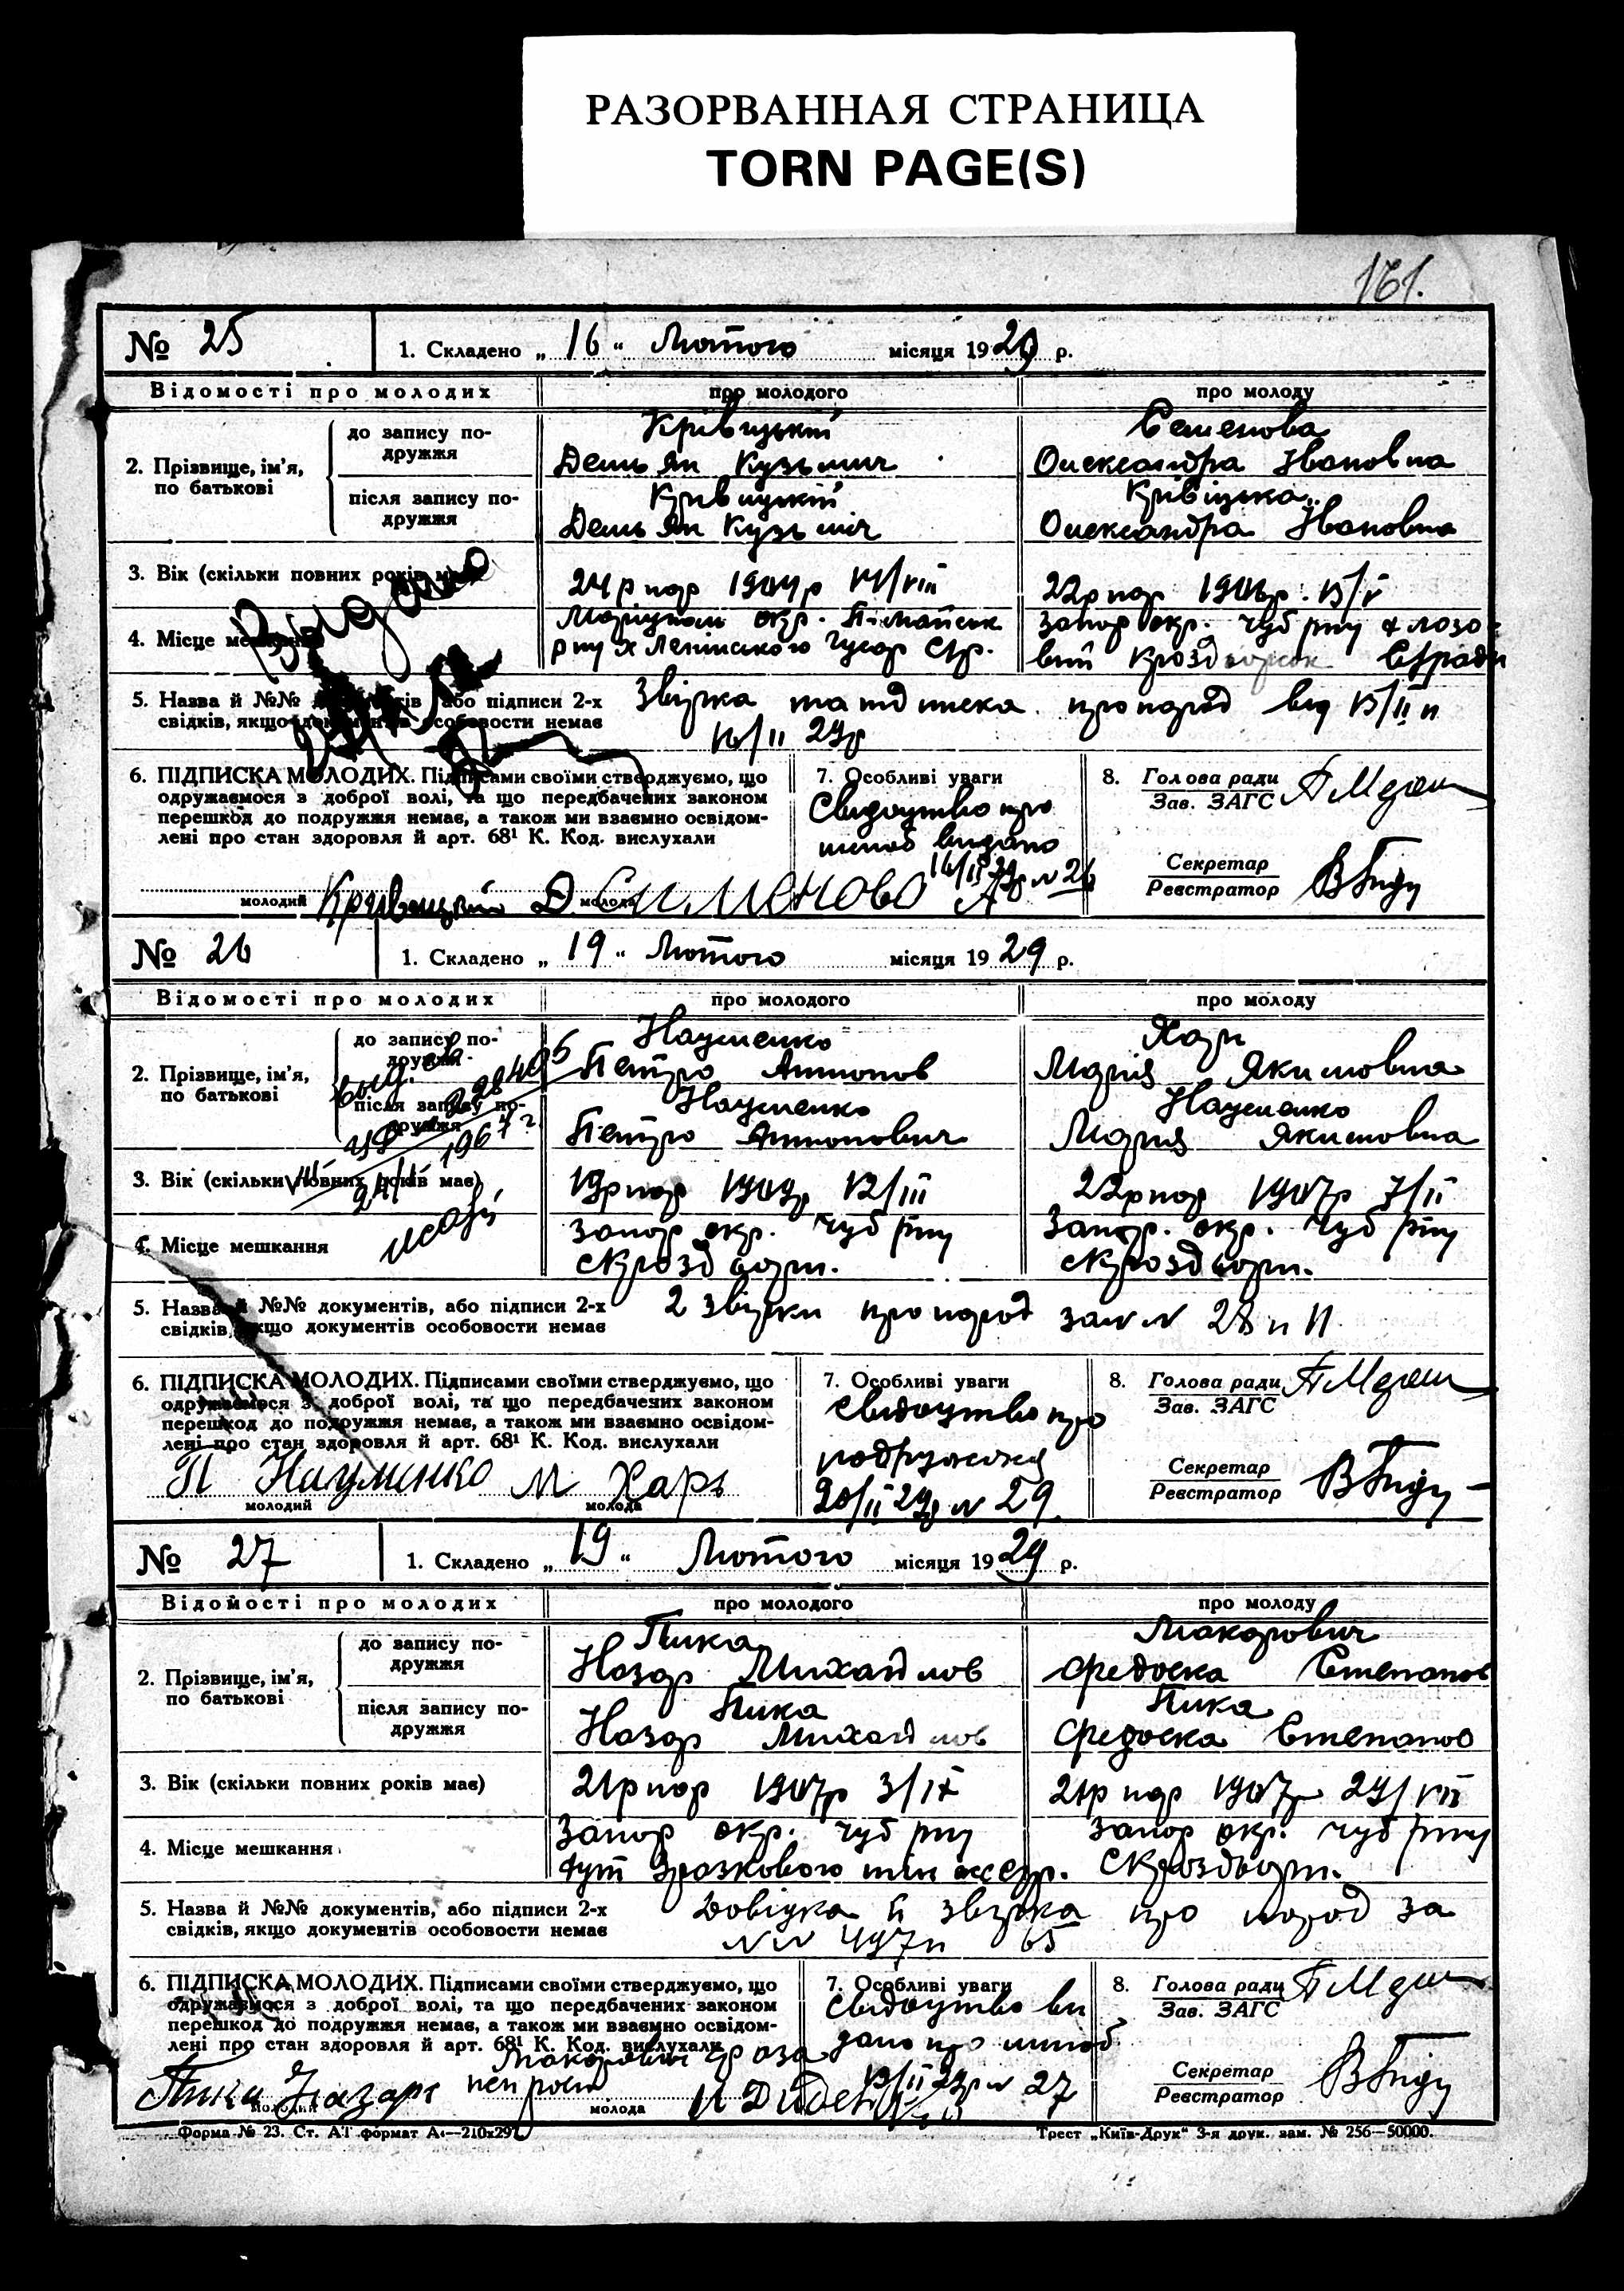 РАЗОРВАННАЯ СТРАНИЦА
TORN PAGE(S)
161.
№ 25 1. Складено „16“ Лютого місяця 1929 р.
Відомості про молодих про молодого про молоду
2. Прізвище, ім’я, по батькові
до запису подружжя
Крівицькій
Демьян Кузьмич
Семенова
Олександра Івановна
після запису подружжя
Крівицькій
Демьян Кузьміч
Крівіцька
Олександра Івановна
3. Вік (скільки повних років має)
24 р нар 1904 р /VIII
22 р нар 1906 р. 15/V
4. Місце мешкання
Маріупол окр.
р ну х Ленінського
Запор окр. Чуб рну
Видано
5. Назва й №№ документів, або підписи 2-х
свідків, якщо документів особовости немає
Звірка та підписка про народ від 15/II и
16/II 29р
6. ПІДПИСКА МОЛОДИХ. Підписами своїми стверджуємо, що
одружаємося з доброї волі, та що передбачених законом
перешкод до подружжя немає, а також ми взаємно освідом-
лені про стан здоровля й арт. 68¹ К. Код. вислухали
7. Особливі уваги
Свидоцтво про
шлюб видано
16/II 29р № 26
8. Голова ради
Зав. ЗАГС
Секретар
Реєстратор
молодий Кривицкий Д молода Сименова А
№ 26 1. Складено „19“ Лютого місяця 1929 р.
Відомості про молодих про молодого про молоду
2. Прізвище, ім’я, по батькові
до запису подружжя
Науменко
Петро Антонов
Харь
Марія Якимовна
після запису подружжя
Науменко
Петро Антонович
Науменко
Марія Якимовна
1967 г.
3. Вік (скільки повних років має)
19 р нар 1909 р 12/III
22 р нар 1907 р 7/II
4. Місце мешкання
Запор окр. Чуб рну
с Кроздворж.
Запор. окр. Чуб рну
с Кроздворж.
5. Назва й №№ документів, або підписи 2-х
свідків, якщо документів особовости немає
2 звірки про народ за № № 28 и 11
6. ПІДПИСКА МОЛОДИХ. Підписами своїми стверджуємо, що
одружаємося з доброї волі, та що передбачених законом
перешкод до подружжя немає, а також ми взаємно освідом-
лені про стан здоровля й арт. 68¹ К. Код. вислухали
7. Особливі уваги
Свидоцтво про
подружжя
20/II 29р № 29
8. Голова ради
Зав. ЗАГС
Секретар
Реєстратор
П Науменко М Харь
молодий молода
№ 27 1. Складено „19“ Лютого місяця 1929 р.
Відомості про молодих про молодого про молоду
2. Прізвище, ім’я, по батькові
до запису подружжя
Пика
Назар Михайлов
Макарович
Федоска Степанов
після запису подружжя
Пика
Назар Михайлов
Пика
Федоска Степанов
3. Вік (скільки повних років має)
21 р нар 1907 р 3/IX
21 р нар 1907 р 29/VII
4. Місце мешкання
Запор окр. Чуб рну
Запор окр. Чуб рну
с Кроздворж.
5. Назва й №№ документів, або підписи 2-х
свідків, якщо документів особовости немає
Довідка й звірка про народ за
№ № 497 и 65
6. ПІДПИСКА МОЛОДИХ. Підписами своїми стверджуємо, що
одружаємося з доброї волі, та що передбачених законом
перешкод до подружжя немає, а також ми взаємно освідом-
лені про стан здоровля й арт. 68¹ К. Код. вислухали
7. Особливі уваги
Свидоцтво ви
дано про шлюб
19/II 29р № 27
8. Голова ради
Зав. ЗАГС
Секретар
Реєстратор
Пика Назарь
молодий молода
Форма № 23. Ст. А1 формат А4—210х297 Трест „Київ-Друк“ 3-я друк. зам. № 256—50000.